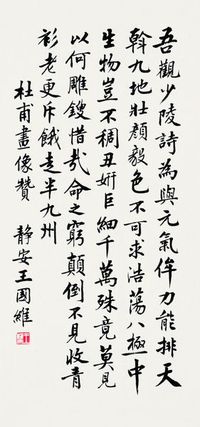 吾觀少陵詩為與元氣侔力能排天
斡九地壯顏毅色不可求浩蕩八極中
生物豈不稠丑妍巨細千萬殊竟莫見
以何雕鎪惜哉命之窮顛倒不見收青
衫老更斥餓走半九州
杜甫畫像贊
靜安王國維